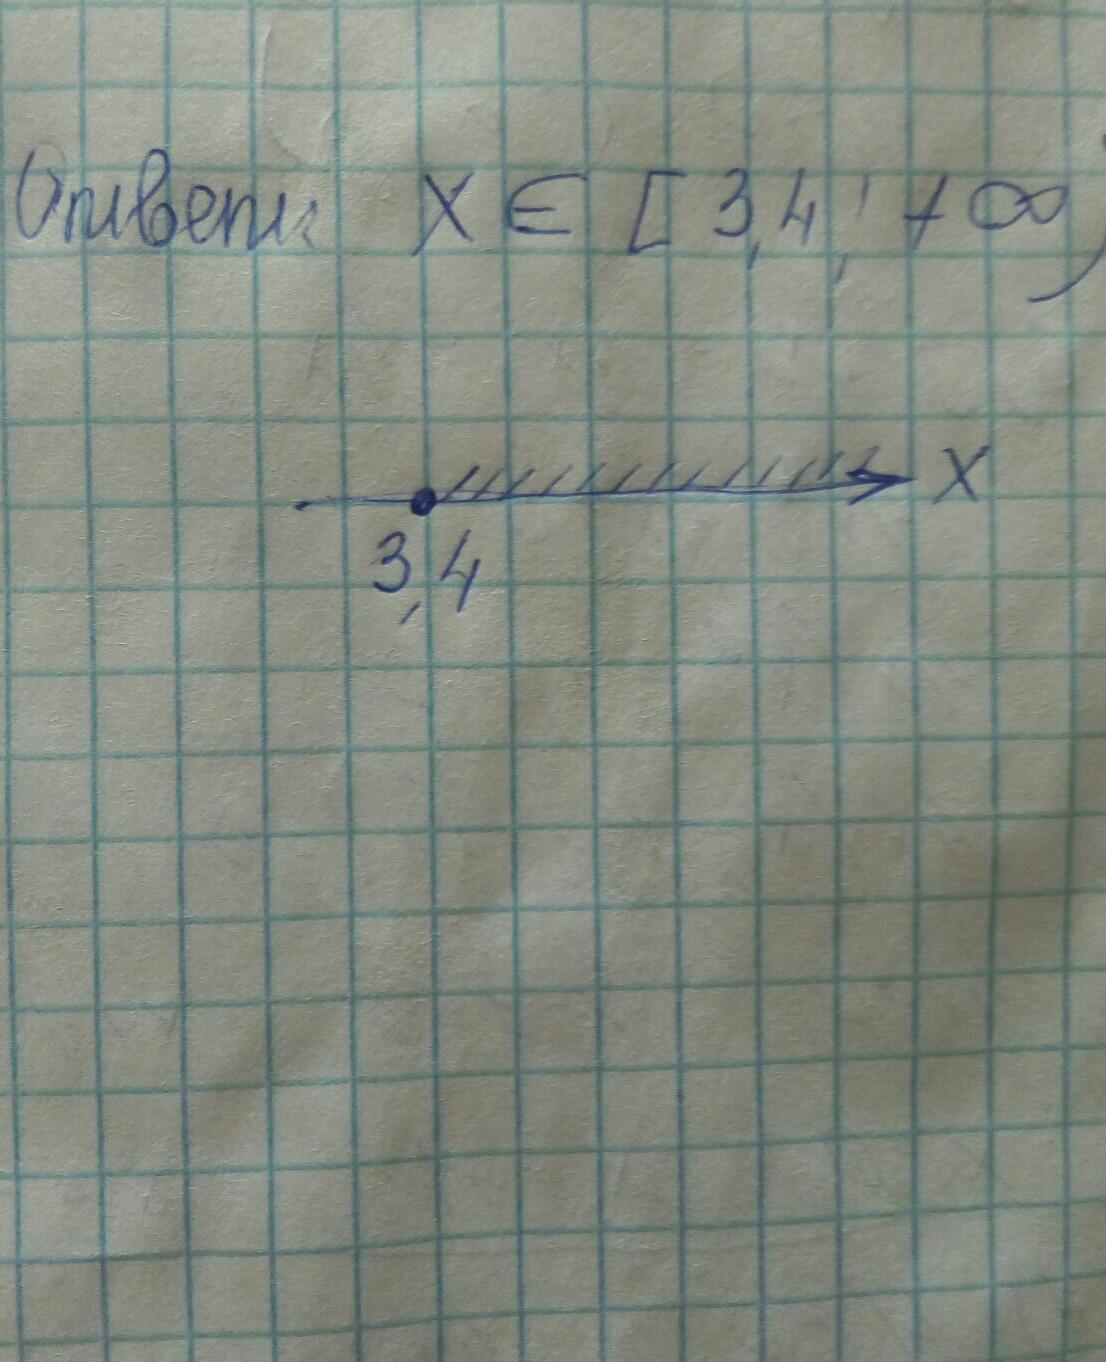 Ответ: X ∈ [3,4; +∞)
X
3,4